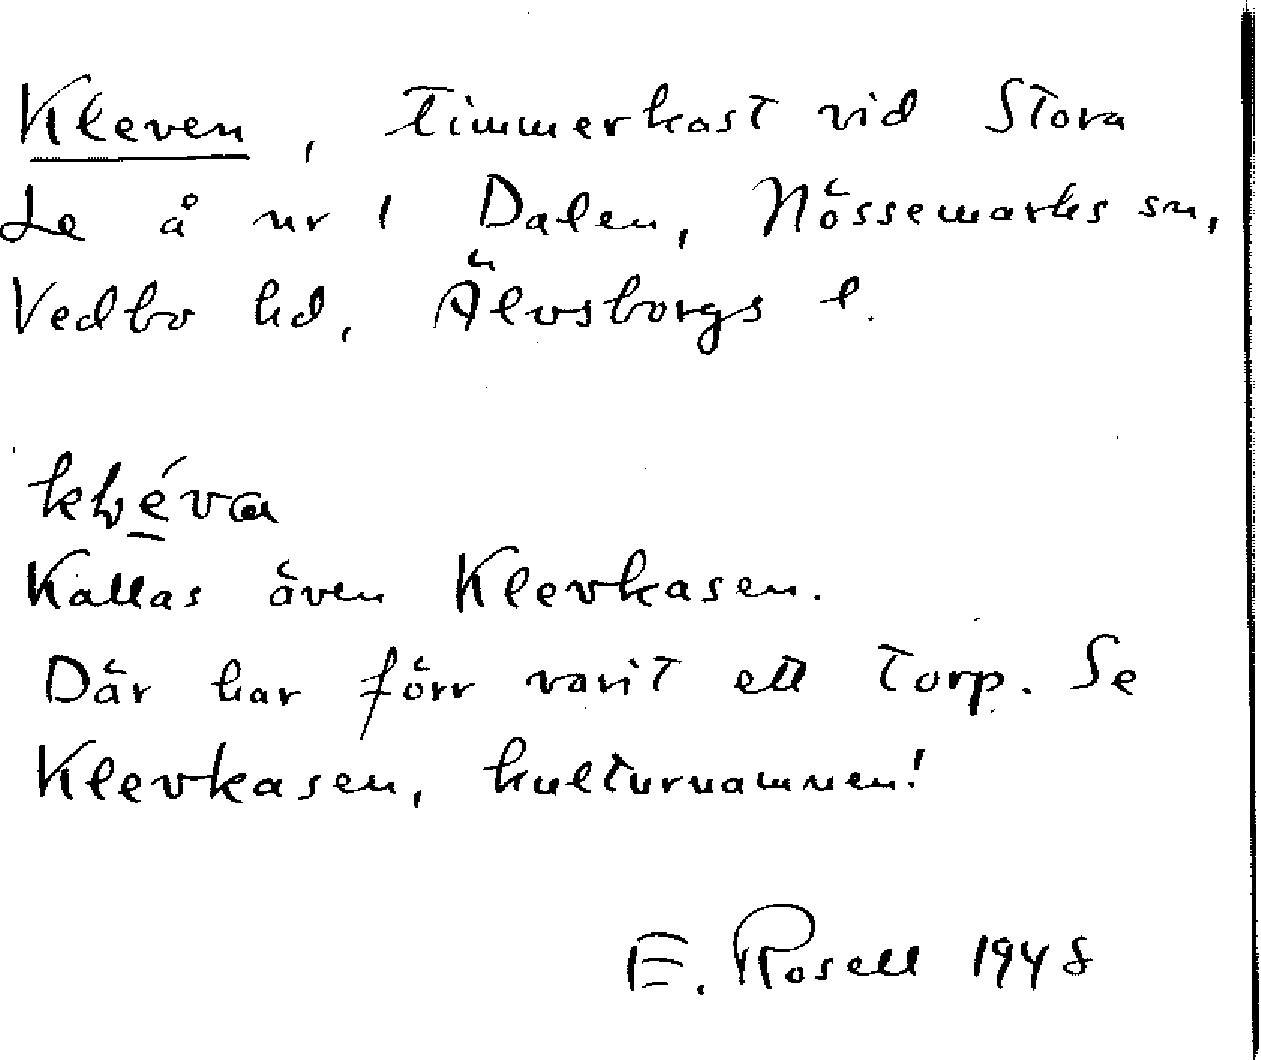 Kleven, timmerkast vid Stora
Le å nr 1 Dalen, Nössemarks sn,
Vedbo hd, Älvsborgs l.
Kallas även Klevkasen.
Där har förr varit ett torp. Se
Klevkasen, kulturnamnen!
E. Rosell 1948